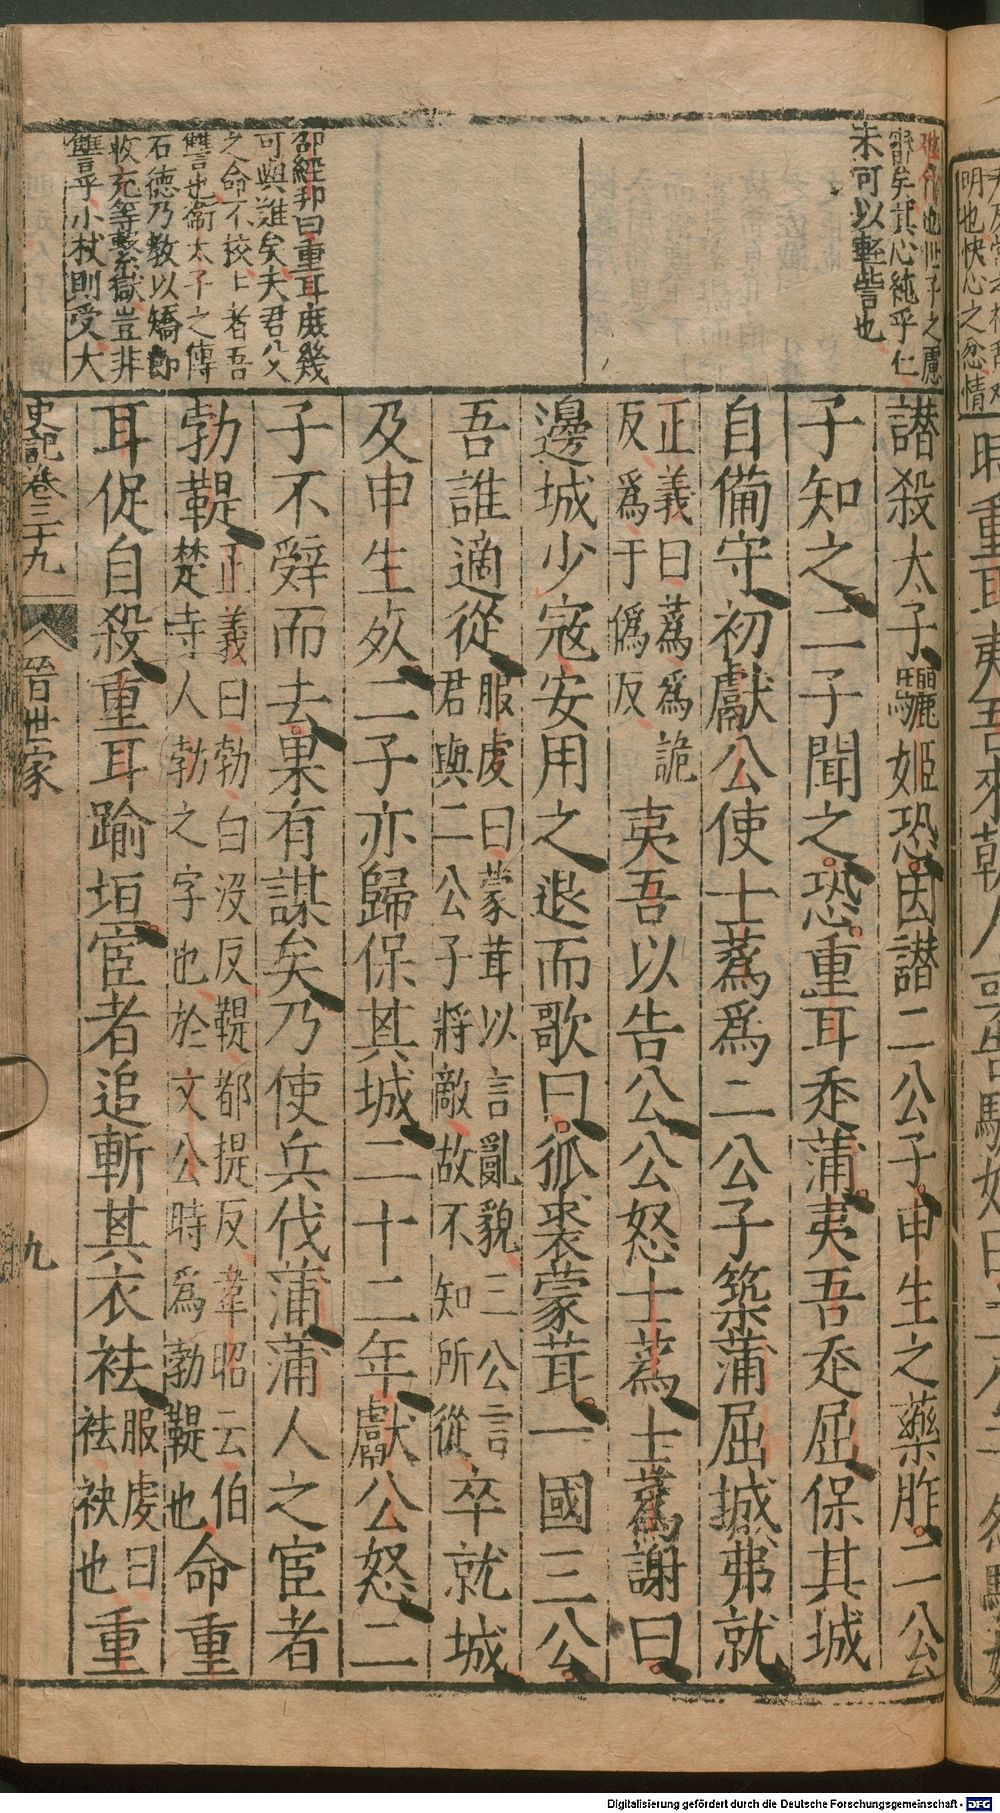 未可以輕訾也
譖殺太子驪姬恐因譖二公子申生之藥胙二公
子知之二子聞之恐重耳走蒲夷吾走屈保其城
自備守初獻公使士蒍爲二公子築蒲屈城弗就
正義曰蒍爲詭
反爲于僞反
夷吾以告公公怒士蒍士蒍謝曰
邊城少寇安用之退而歌曰狐裘蒙茸一國三公
吾誰適從
服虔曰蒙茸以言亂貌三公言
君與二公子將敵故不知所從
卒就城
及申生死二子亦歸保其城二十二年獻公怒二
子不辭而去果有謀矣乃使兵伐蒲蒲人之宦者
勃鞮
正義曰勃白沒反鞮都提反韋昭云伯
楚寺人勃之字也於文公時爲勃鞮也
命重
耳促自殺重耳踰垣宦者追斬其衣袪
服虔曰
袪袂也
重
邵經邦曰重耳庶幾
可與難矣夫君父
之命不校上者吾
讐也衞太子之傅
石德乃教以矯節
收充等繫獄豈非
讐乎小杖則受大
史記卷三十九
晉世家
九
Digitalisierung gefördert durch die Deutsche Forschungsgemeinschaft - DFG